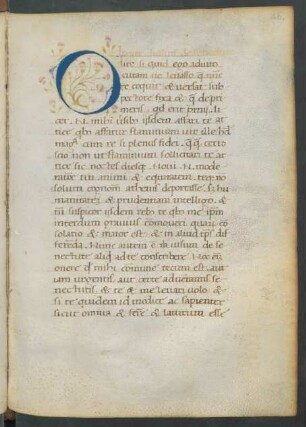 O Tite si quid ego adiuto
curam ve levasso. que nunc
te coquit & versat sub
pectore fixa & qua depri
meris. qd erit premi. li
cet. N. mihi isdem affari te at
tice qbo affatur flaminium vir ille haud
magna cum re si plenus fidei. q.q. certo
scio non ut flaminium sollicitari te at
tice sic noctes diesq. Noui. N. mode
rationem tui animi & equitatem. teq no
solum cognom athenis deportasse. s; hu
manitatem & prudentiam intelligo. &
tn suspicor isdem rebo te qbo me ipm
interdum grauius comoueri quarum con
solatio & maior est. & in aliud tps dif
ferenda. Nunc autem e m uisum de se
nectute aliqd ad te conscribere. Hoc en
onere qd mihi comune tecum est. aut
iam urgentis. aut certe aduentantis se
nectutis. & te & me leuari uolo. &
si te quidem id modice ac sapienter
sicut omnia & ferre & laturum esse